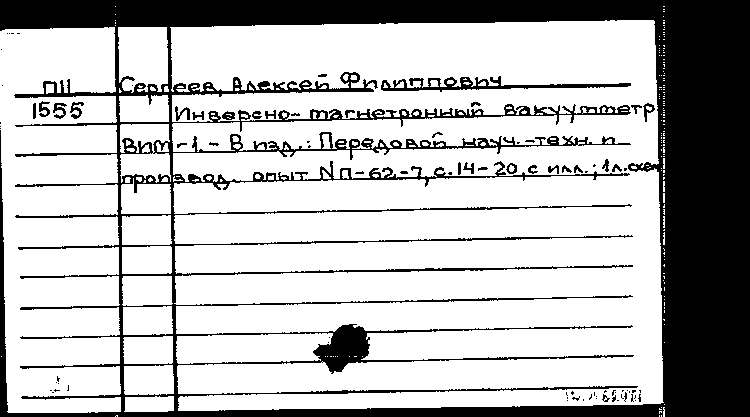 П11 Сергеев, Алексей Филиппович
1555 Инверсно-магнетронный вакуумметр
ВИМ-1. - В изд.: Передовой науч.-техн. и
производ. опыт №П-62-7, с.14-20, с илл.; 1л.схем